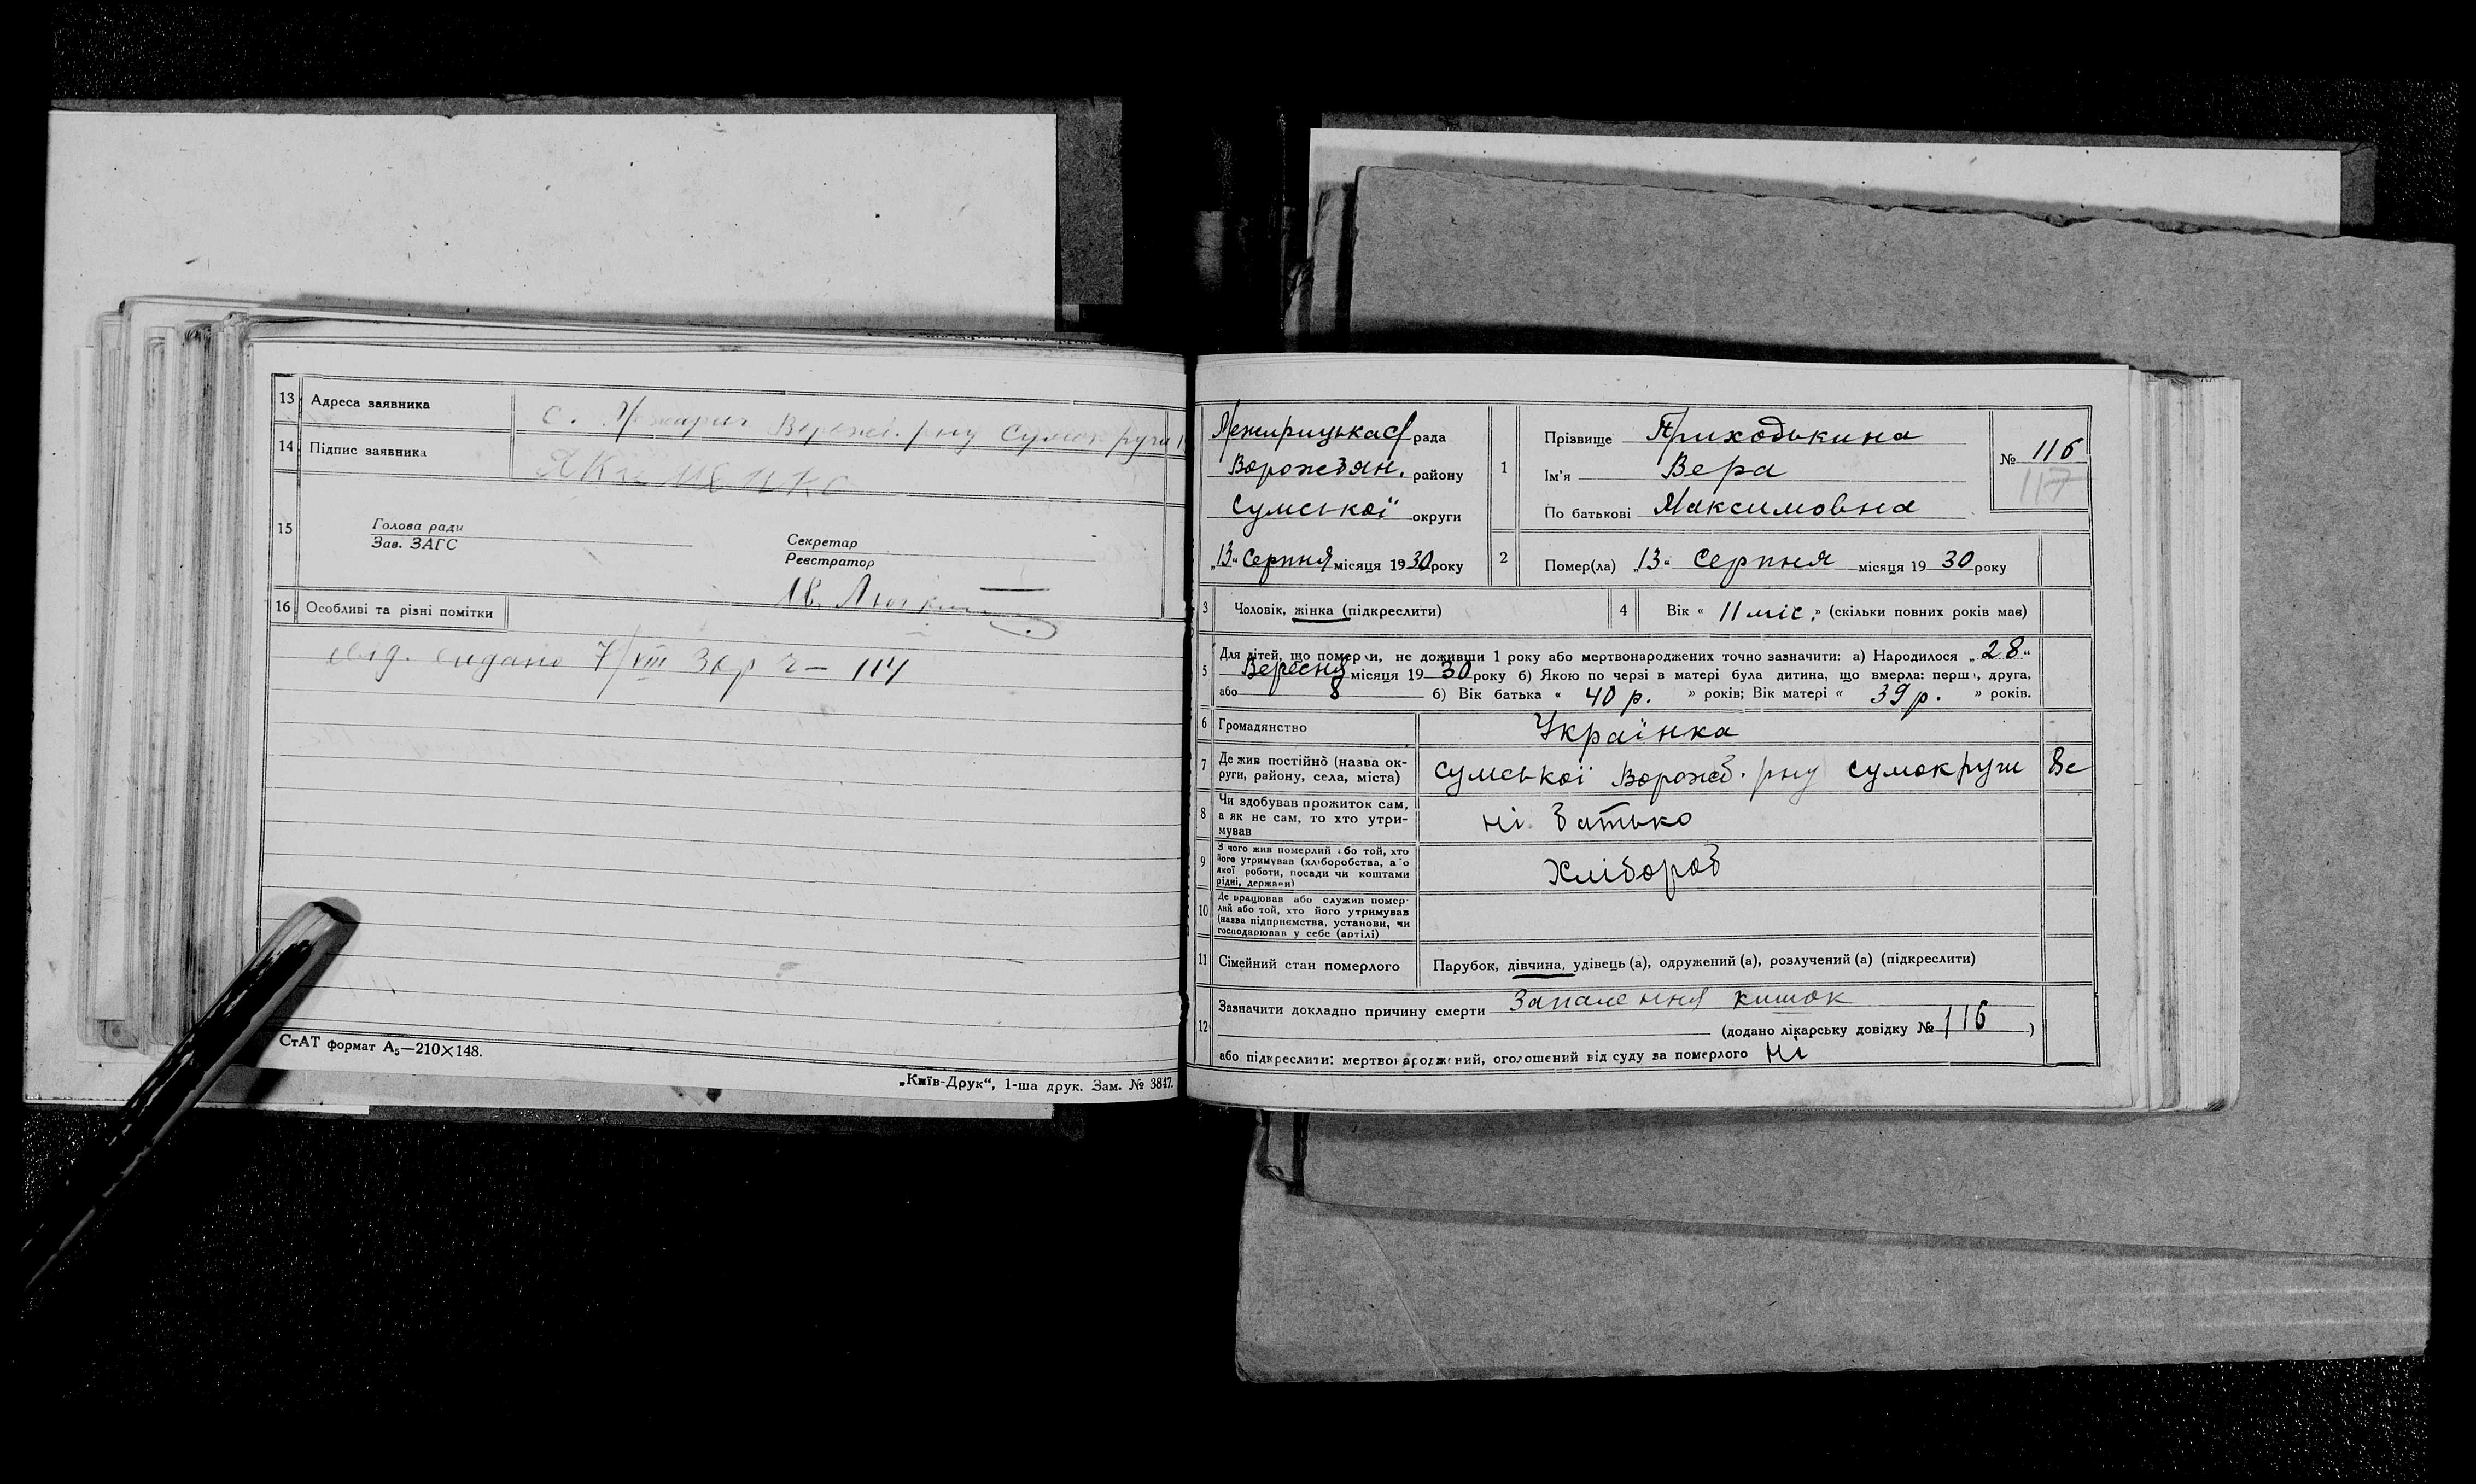 13 Адреса заявника с. Межирич Ворожб. рну Сумокруги
14 Підпис заявника Якименко
15 Голова ради
Зав. ЗАГС
Секретар
Реєстратор
16 Особливі та різні помітки
свід. видано 7/VIII 30 р ч — 114
СтАТ формат А₅—210×148.
„Київ-Друк“, 1-ша друк. Зам. № 3847.
Межирицька рада
Ворожбян. району
Сумської округи
„13“ Серпня місяця 1930 року
1 Прізвище Приходькина
Ім'я Вера
По батькові Максимовна
№ 116
117
2 Помер(ла) „13“ Серпня місяця 1930 року
3 Чоловік, жінка (підкреслити)
4 Вік « 11 міс. » (скільки повних років має)
5 Для дітей, що померли, не доживши 1 року або мертвонароджених точно зазначити: а) Народилося „28“
Вересня місяця 1930 року б) Якою по черзі в матері була дитина, що вмерла: перша, друга,
або 8 б) Вік батька « 40 р. » років; Вік матері « 39 р. » років.
6 Громадянство Українка
7 Де жив постійно (назва ок-
руги, району, села, міста) Сумської Ворожб. рну Сумокруги Вс
8 Чи здобував прожиток сам,
а як не сам, то хто утри-
мував ні батько
9 З чого жив померлий або той, хто
його утримував (хліборобства, або
якої роботи, посади чи коштами
рідні, держави) Хлібороб
10 Де працював або служив помер-
лий або той, хто його утримував
(назва підприємства, установи, чи
господарював у себе (артілі)
11 Сімейний стан померлого Парубок, дівчина, удівець(а), одружений(а), розлучений(а) (підкреслити)
12 Зазначити докладно причину смерти Запалення кишок
(додано лікарську довідку № 116)
або підкреслити: мертвонароджений, оголошений від суду за померлого ні